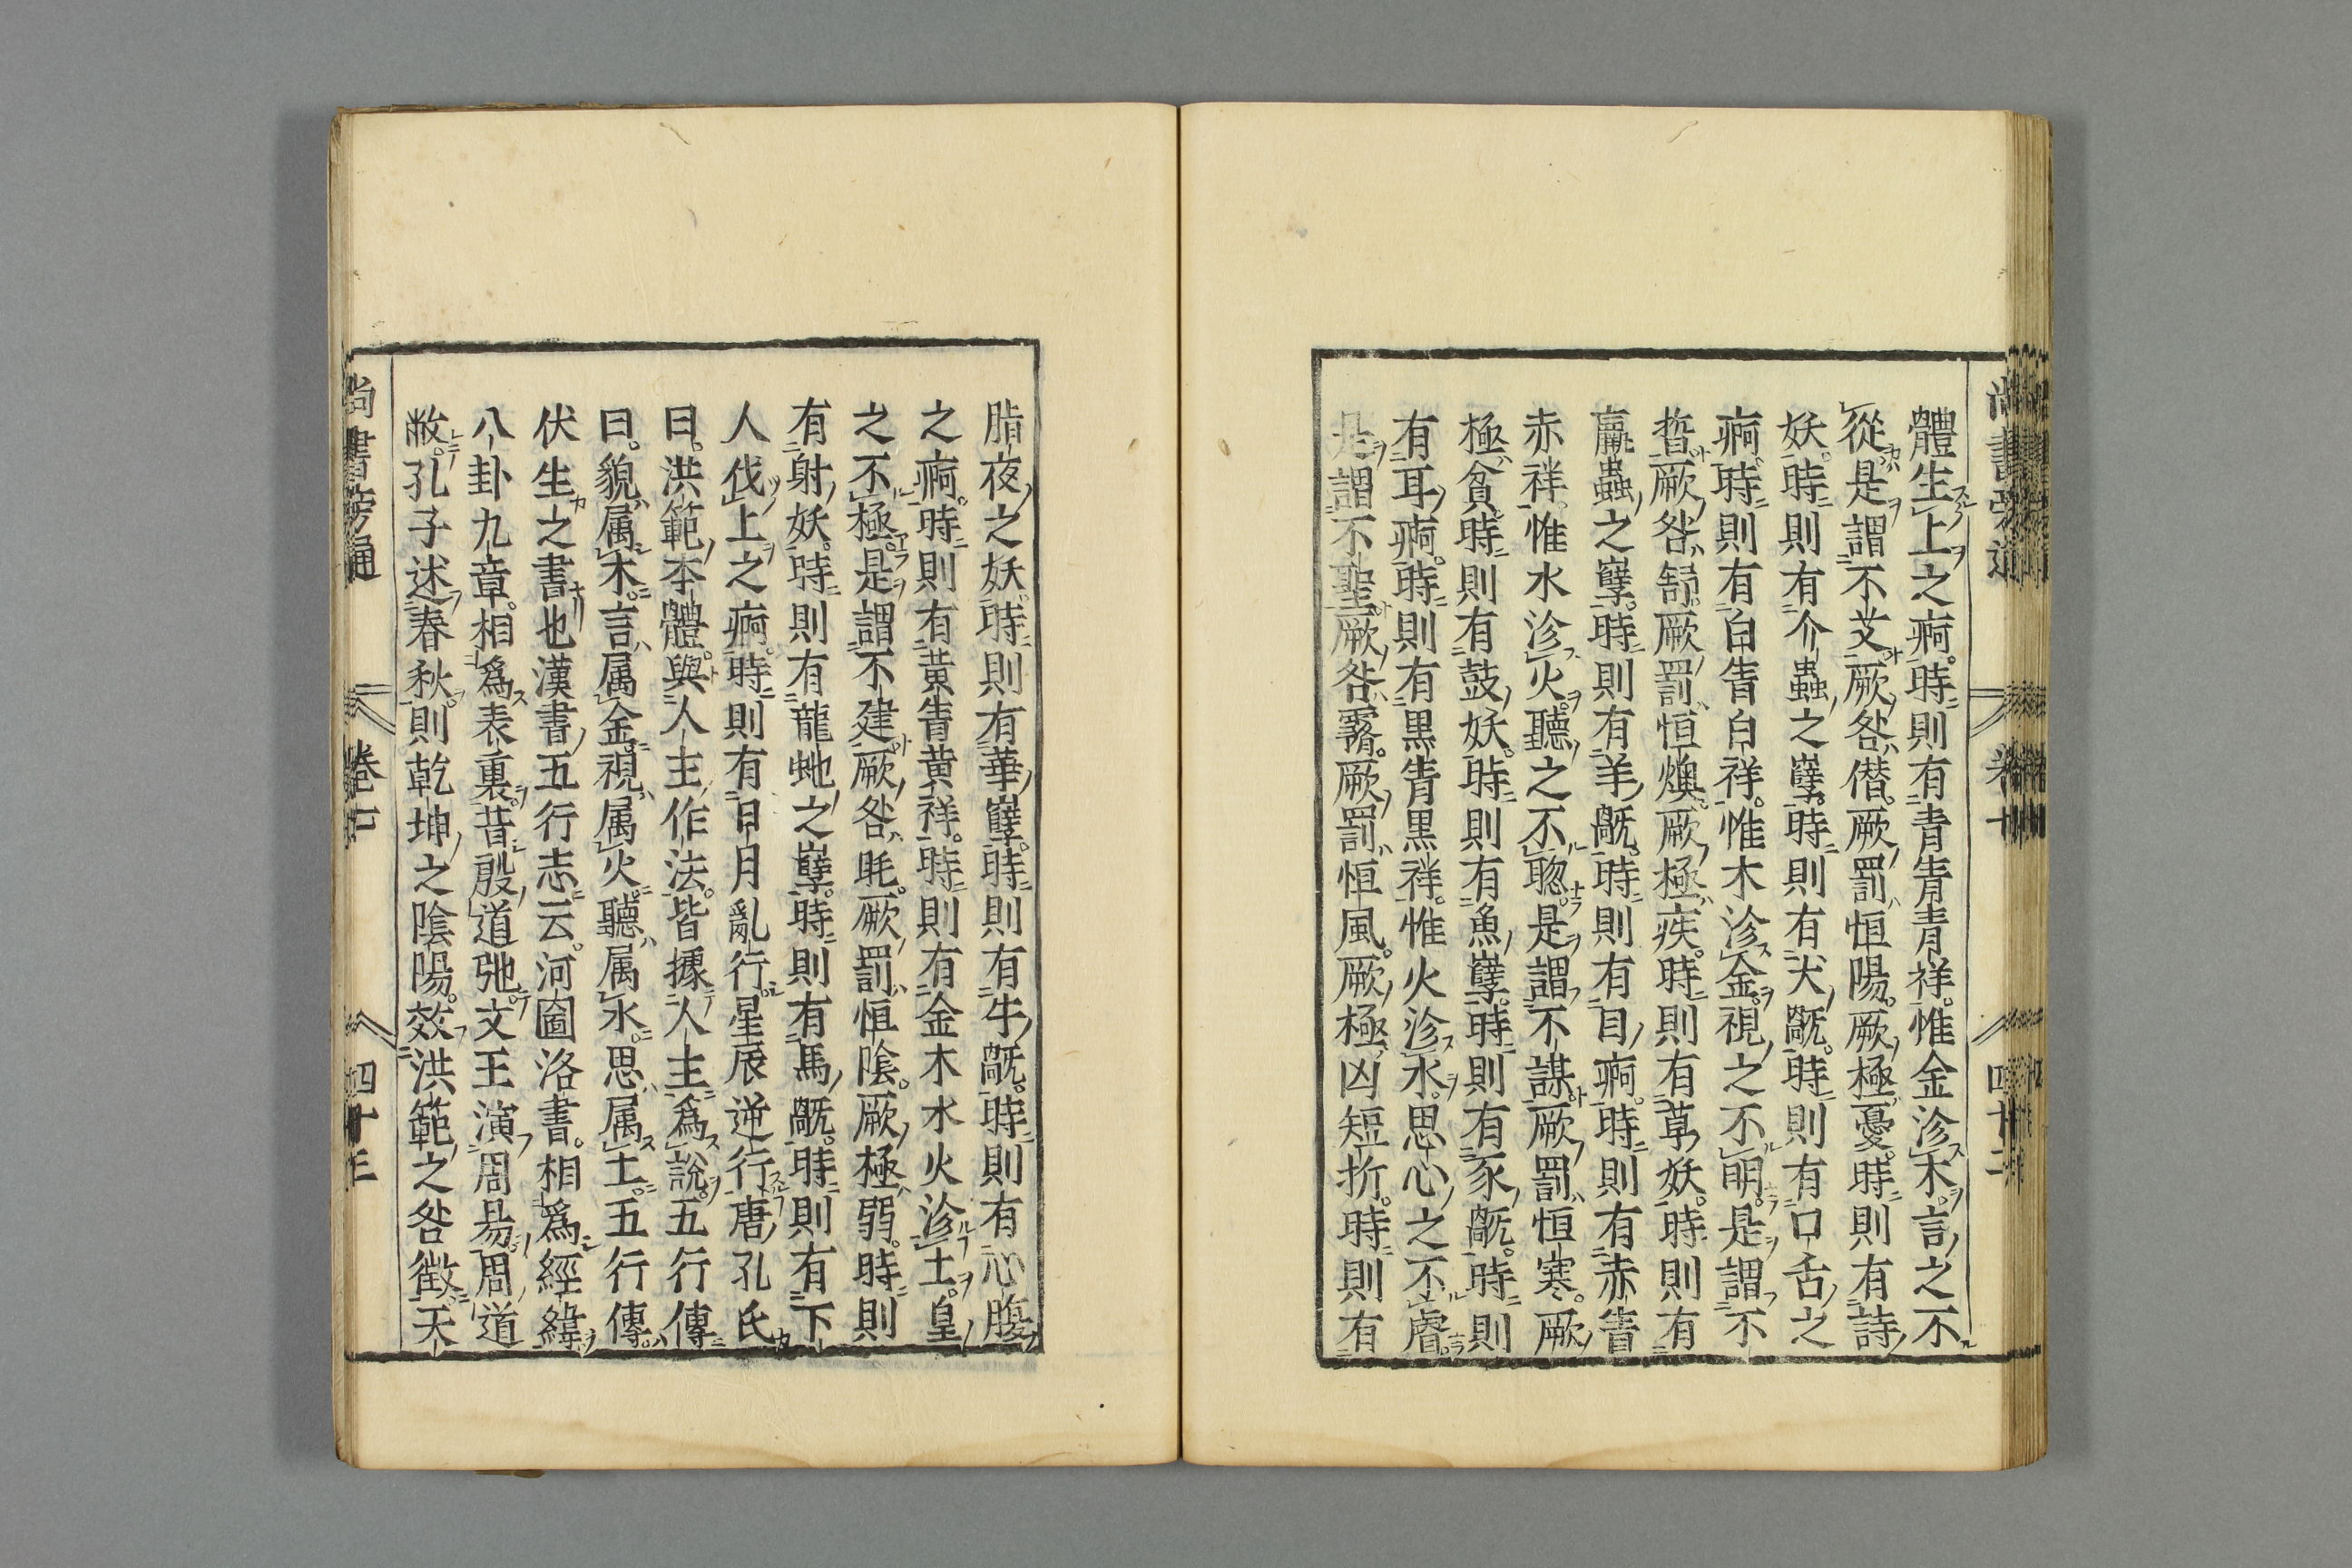 體生上之痾時則有青眚青祥惟金沴木言之不
從是謂不艾厥咎僭厥罰恒陽厥極憂時則有詩
妖時則有介蟲之孽時則有犬旤時則有口舌之
痾時則有白眚白祥惟木沴金視之不明是謂不
哲厥咎舒厥罰恒燠厥極疾時則有草妖時則有
蠃蟲之孽時則有羊旤時則有目痾時則有赤眚
赤祥惟水沴火聽之不聰是謂不謀厥罰恒寒厥
極貧時則有鼓妖時則有魚孽時則有豕旤時則
有耳痾時則有黒眚黒祥惟火沴水思心之不睿
是謂不聖厥咎霿厥罰恒風厥極凶短折時則有
尚書旁通 卷十 四十二
脂夜之妖時則有華孽時則有牛旤時則有心腹
之痾時則有黄眚黄祥時則有金木水火沴土皇
之不極是謂不建厥咎眊厥罰恒陰厥極弱時則
有射妖時則有龍虵之孽時則有馬旤時則有下
人伐上之痾時則有日月亂行星辰逆行唐孔氏
曰洪範本體與人主作法皆據人主為說五行傳
曰貌属木言属金視属火聽属水思属土五行傳
伏生之書也漢書五行志云河圖洛書相為經緯
八卦九章相為表裏昔殷道弛文王演周易周道
敝孔子述春秋則乾坤之陰陽效洪範之咎徵天
尚書旁通 卷十 四十三